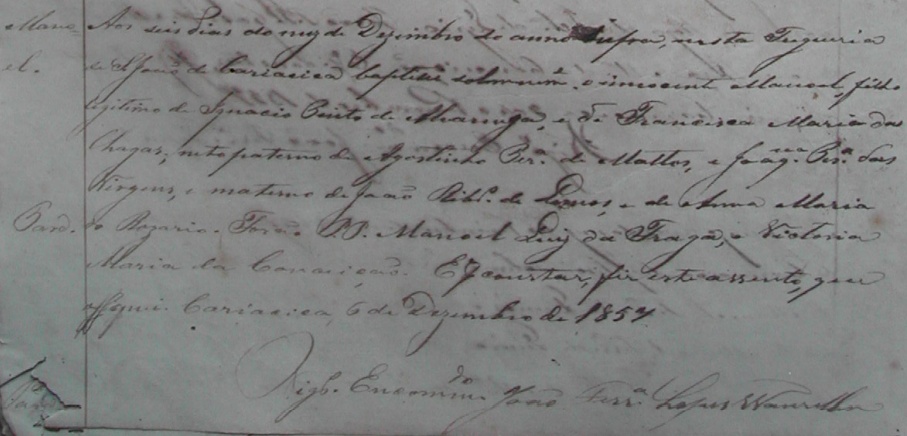 Mano-
el.
Aos seis dias do mez de Dezembro do anno supra, nesta Freguesia
de S. João de Cariacica baptisei solemnem.e o innocente Manoel, filho
legitimo de Ignacio Pinto de e de Francisca Maria das
Chagas, neto paterno de Agostinho Per.a de Mattos, e Joaq.na Per.a das
Virgens, e materno de João Rib.o de Lemos, e de Anna Maria
Pard. do Rozario. Forão P.P. Manoel Luiz da Fraga, e Victoria
Maria da Conceição. E p.a constar, fiz este assento, que
assignei. Cariacica, 6 de Dezembro de 1857
Vigr.o Encomm.do João Ferr.a Lopes